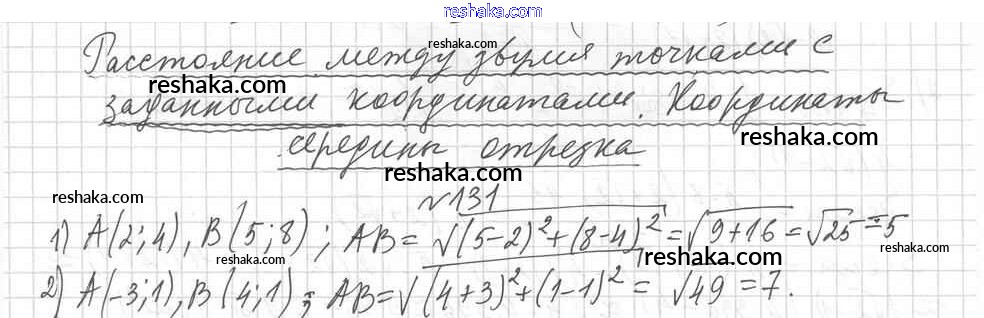 reshaka.com
Расстояние между двумя точками с
заданными координатами. Координаты
середины отрезка
№131
1) A(2;4), B(5;8); AB = √((5-2)²+(8-4)²) = √(9+16) = √25 = 5
2) A(-3;1), B(4;1); AB = √((4+3)²+(1-1)²) = √49 = 7.
reshaka.com
reshaka.com
reshaka.com
reshaka.com
reshaka.com
reshaka.com
reshaka.com